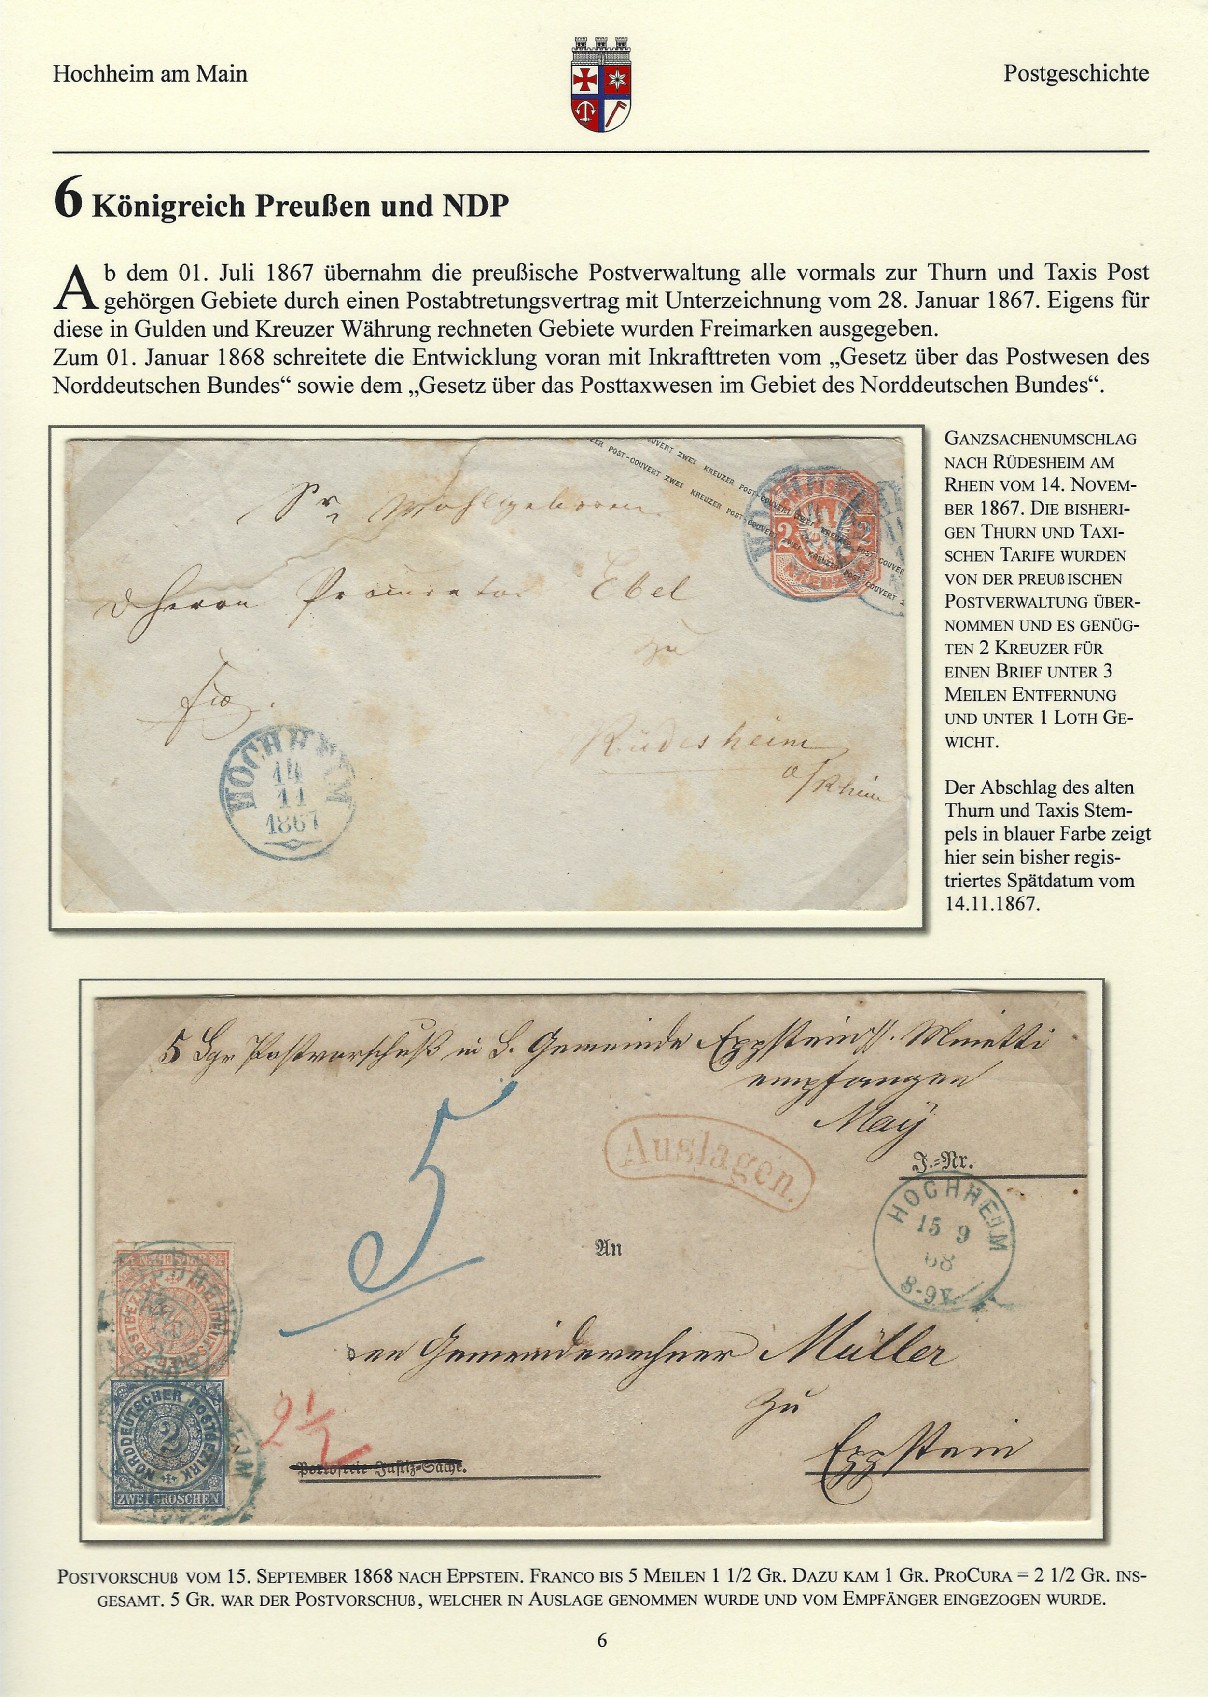 Hochheim am Main
Postgeschichte
6 Königreich Preußen und NDP
Ab dem 01. Juli 1867 übernahm die preußische Postverwaltung alle vormals zur Thurn und Taxis Post
gehörgen Gebiete durch einen Postabtretungsvertrag mit Unterzeichnung vom 28. Januar 1867. Eigens für
diese in Gulden und Kreuzer Währung rechneten Gebiete wurden Freimarken ausgegeben.
Zum 01. Januar 1868 schreitete die Entwicklung voran mit Inkrafttreten vom „Gesetz über das Postwesen des
Norddeutschen Bundes“ sowie dem „Gesetz über das Posttaxwesen im Gebiet des Norddeutschen Bundes“.
POST-COUVERT ZWEI KREUZER POST-COUVERT ZWEI KREUZER
Sr Wohlgeboren
Herrn Procurator Ebel
zu
Rüdesheim
a/Rhein
HOCHHEIM
14
11
1867
GANZSACHENUMSCHLAG
NACH RÜDESHEIM AM
RHEIN VOM 14. NOVEM-
BER 1867. DIE BISHERI-
GEN THURN UND TAXI-
SCHEN TARIFE WURDEN
VON DER PREUßISCHEN
POSTVERWALTUNG ÜBER-
NOMMEN UND ES GENÜG-
TEN 2 KREUZER FÜR
EINEN BRIEF UNTER 3
MEILEN ENTFERNUNG
UND UNTER 1 LOTH GE-
WICHT.
Der Abschlag des alten
Thurn und Taxis Stem-
pels in blauer Farbe zeigt
hier sein bisher regis-
triertes Spätdatum vom
14.11.1867.
5 Sgr Postvorschuß in S. Gemeinde Eppstein
empfangen
May
5
Auslagen.
J.-Nr.
HOCHHEIM
15 9
68
8-9V.
An
den Gemeinderechner Müller
zu
Eppstein
2 1/2
Portofreie Justiz-Sache.
NORDDEUTSCHER POSTBEZIRK
2
ZWEI GROSCHEN
POSTVORSCHUß VOM 15. SEPTEMBER 1868 NACH EPPSTEIN. FRANCO BIS 5 MEILEN 1 1/2 GR. DAZU KAM 1 GR. PROCURA = 2 1/2 GR. INS-
GESAMT. 5 GR. WAR DER POSTVORSCHUß, WELCHER IN AUSLAGE GENOMMEN WURDE UND VOM EMPFÄNGER EINGEZOGEN WURDE.
6